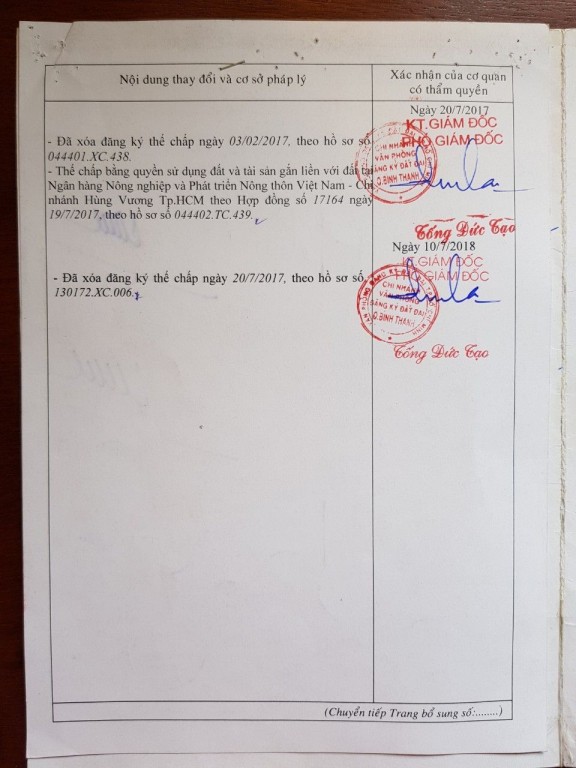 Nội dung thay đổi và cơ sở pháp lý
Xác nhận của cơ quan
có thẩm quyền
Ngày 20/7/2017
KT.GIÁM ĐỐC
PHÓ GIÁM ĐỐC
- Đã xóa đăng ký thế chấp ngày 03/02/2017, theo hồ sơ số
044401.XC.438.
- Thế chấp bằng quyền sử dụng đất và tài sản gắn liền với đất tại
Ngân hàng Nông nghiệp và Phát triển Nông thôn Việt Nam - Chi
nhánh Hùng Vương Tp.HCM theo Hợp đồng số 17164 ngày
19/7/2017, theo hồ sơ số 044402.TC.439.
CHI NHÁNH
VĂN PHÒNG
ĐĂNG KÝ ĐẤT ĐAI
Q.BÌNH THẠNH
Tống Đức Tạo
Ngày 10/7/2018
KT.GIÁM ĐỐC
PHÓ GIÁM ĐỐC
- Đã xóa đăng ký thế chấp ngày 20/7/2017, theo hồ sơ số
130172.XC.006.
CHI NHÁNH
VĂN PHÒNG
ĐĂNG KÝ ĐẤT ĐAI
Q.BÌNH THẠNH
Tống Đức Tạo
(Chuyển tiếp Trang bổ sung số:........)